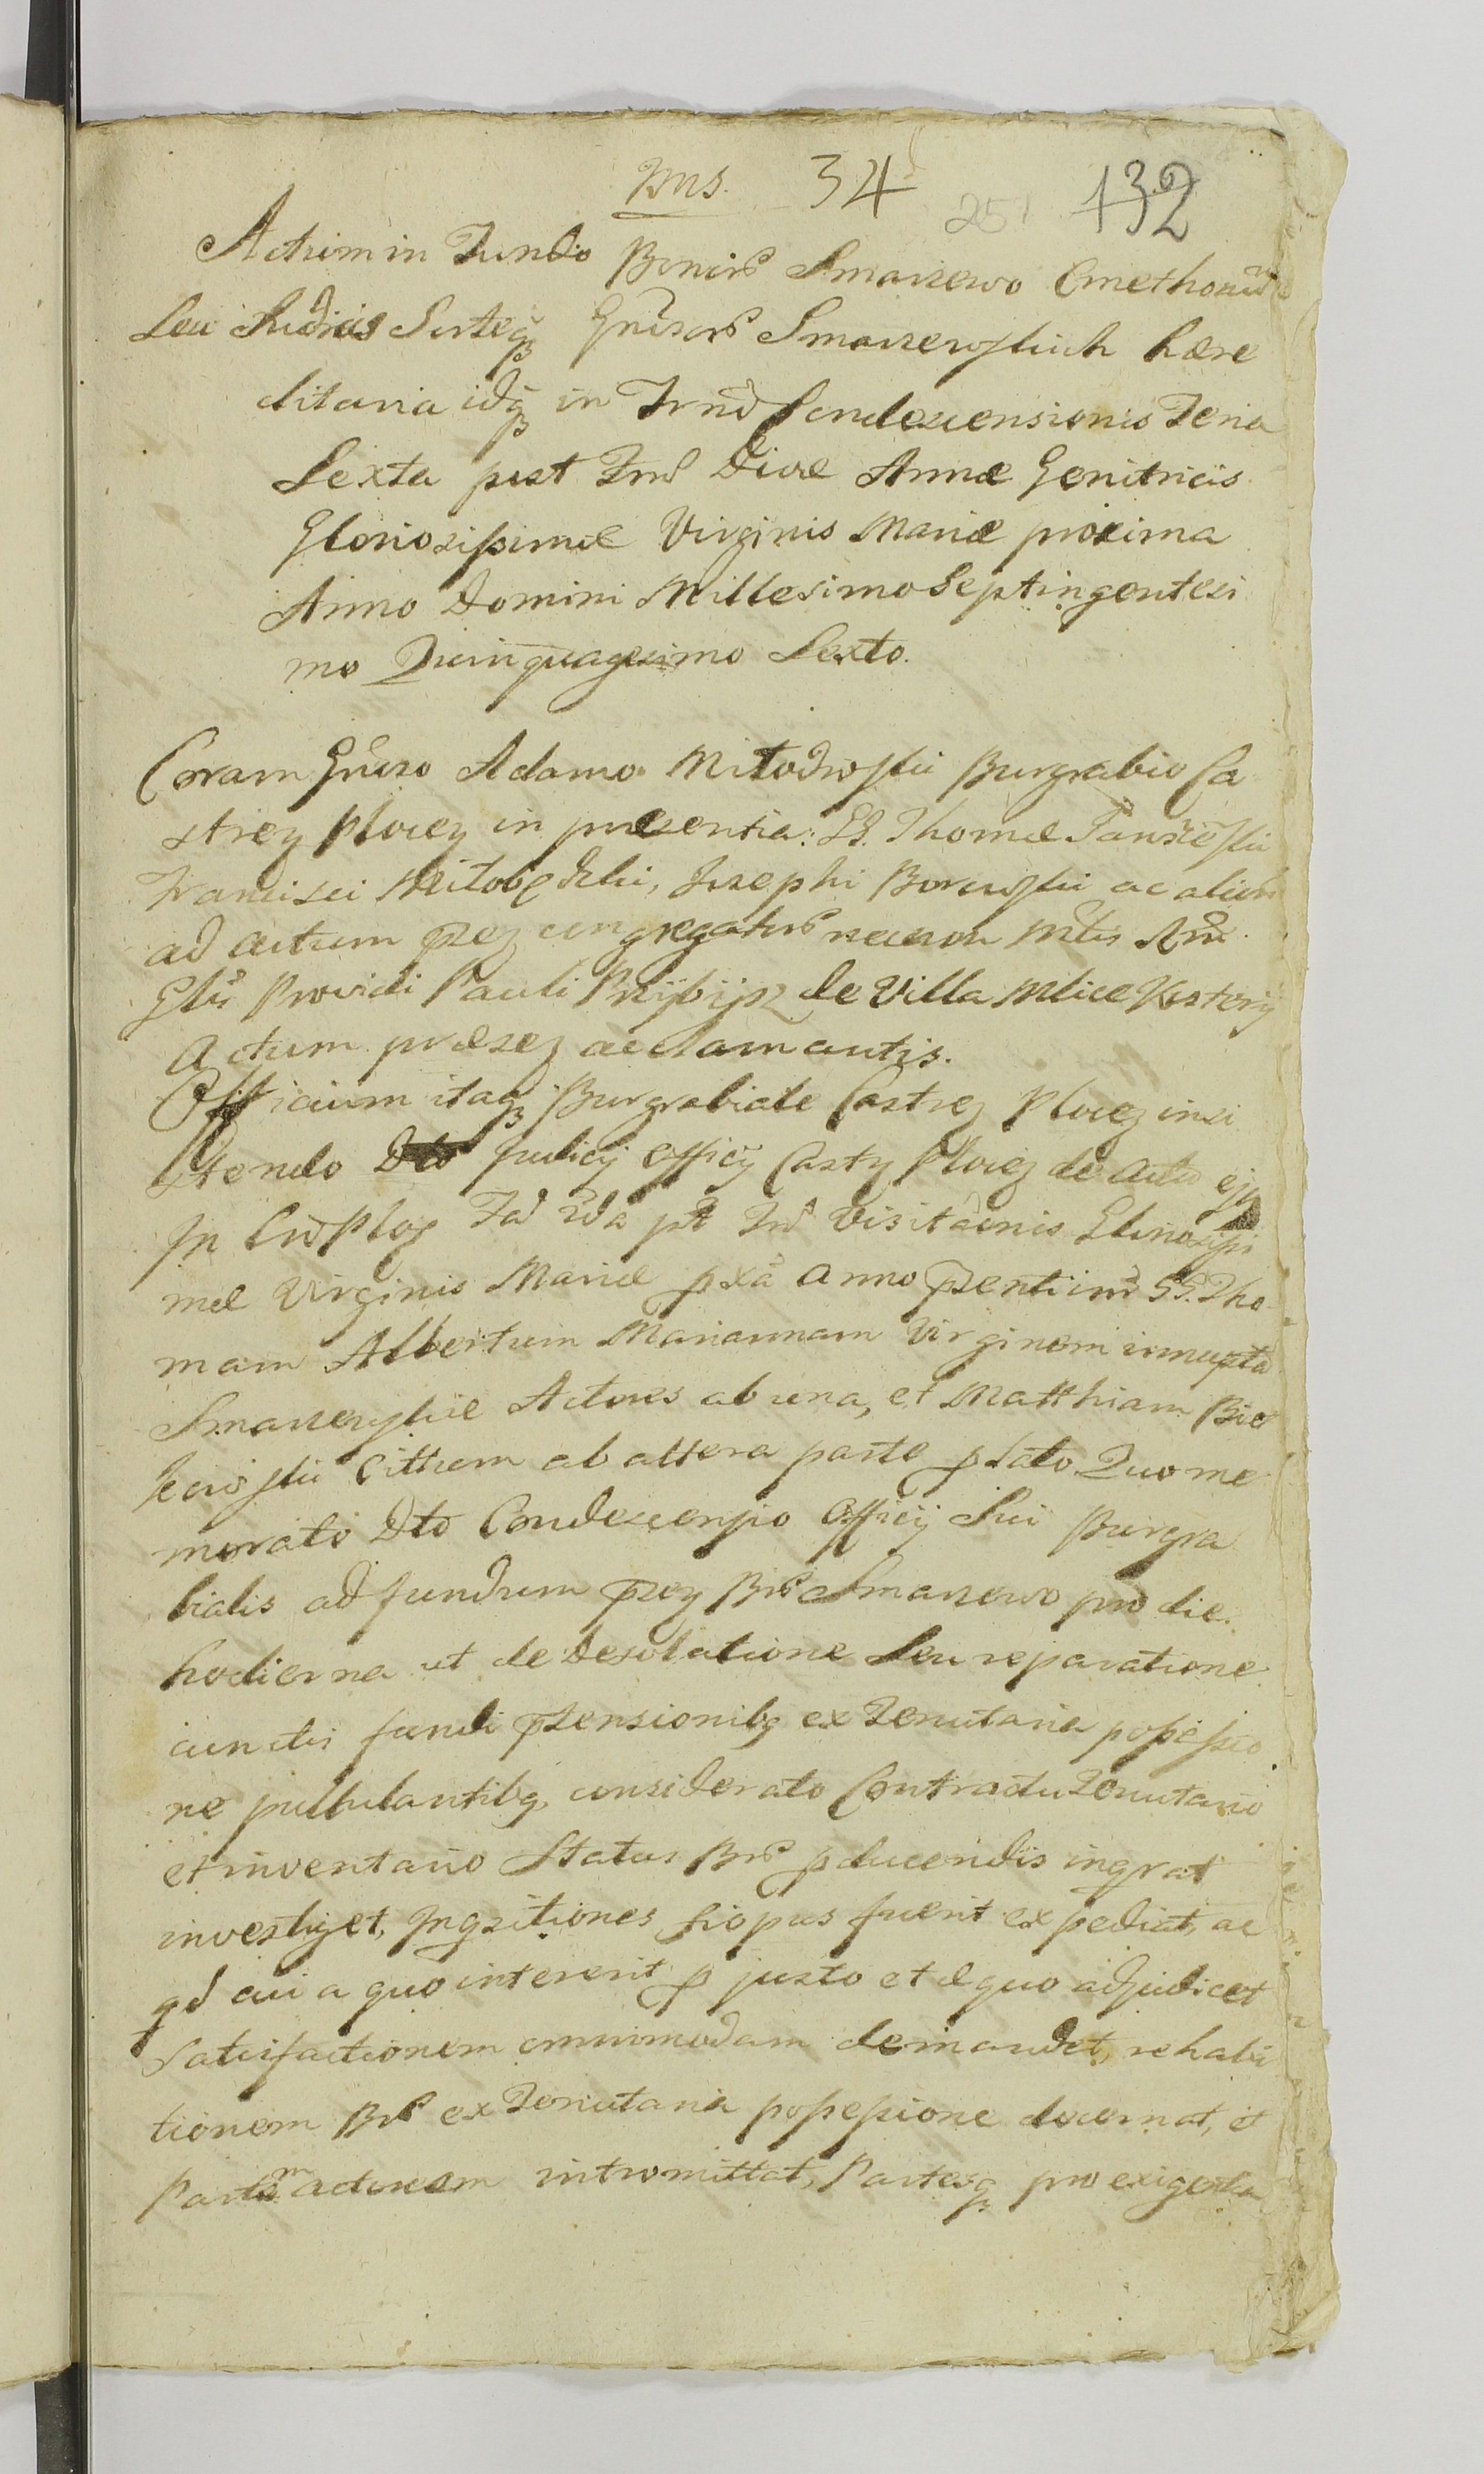 34 251 132
Actum in Fundo Bonorũ Smarzewo Cmethonũ
seu Sortisq̃ Gñsorũ Smarzewskich hære
ditaria idq̃ in Trnõ Condescensionis Feria
Sexta post Ftũ Divæ Annæ Genitricis
Gloriosissimæ Virginis Mariæ proxima
Anno Domini Millesimo Septingentesi
mo Quinquagesimo Sexto.
Coram Gñroso Adamo Miłodroski Burgrabio Ca
strez Plocez in præsentia: GG. Thomæ
Francisci Josephi Borewski ac alior
ad actum pñz congregatorũ necnon Mtis Rñi
Glis Providi Pauli de Villa Mlice
Actum præsez acclamantis.
Officium itaq̃ Burgrabiale Castrez Plocez insi
stendo Dto Judicij Officij Castrz Plocez de actu ejus
In Cur Ploc Fa 2da pt Ftũ Visitaõnis Glorioissi
mæ Virginis Mariæ pxã anno pñsenti int GG. Tho
mam Albertum Mariannam Virginem innuptã
Smarzewskie Actores ab una, et Matthiam Bie
ab altera parte plato Quo me
morato Dto Condescensio Officij Sui Burgra
bialis ad fundum pñz Brũ Smarzewo pro die
hodierna ut de Desolatione Seu reparatione
cunctis fundi ptensionibq ex Tenutaria possessio
ne pullulantibq, considerato Contractu Tenutario
et inventario Status Brũ pducendis ingrat
investiget, Inqsitiones si opus fuerit expediat, ac
qd cui a quo intererit p justo et æquo adjudicet
Satisfactionem omnimodam demandet, rehabi
tionem Brũ ex Tenutaria possessione decernat, et
Partem actorem intromittat, Partesq̃ pro exigentia